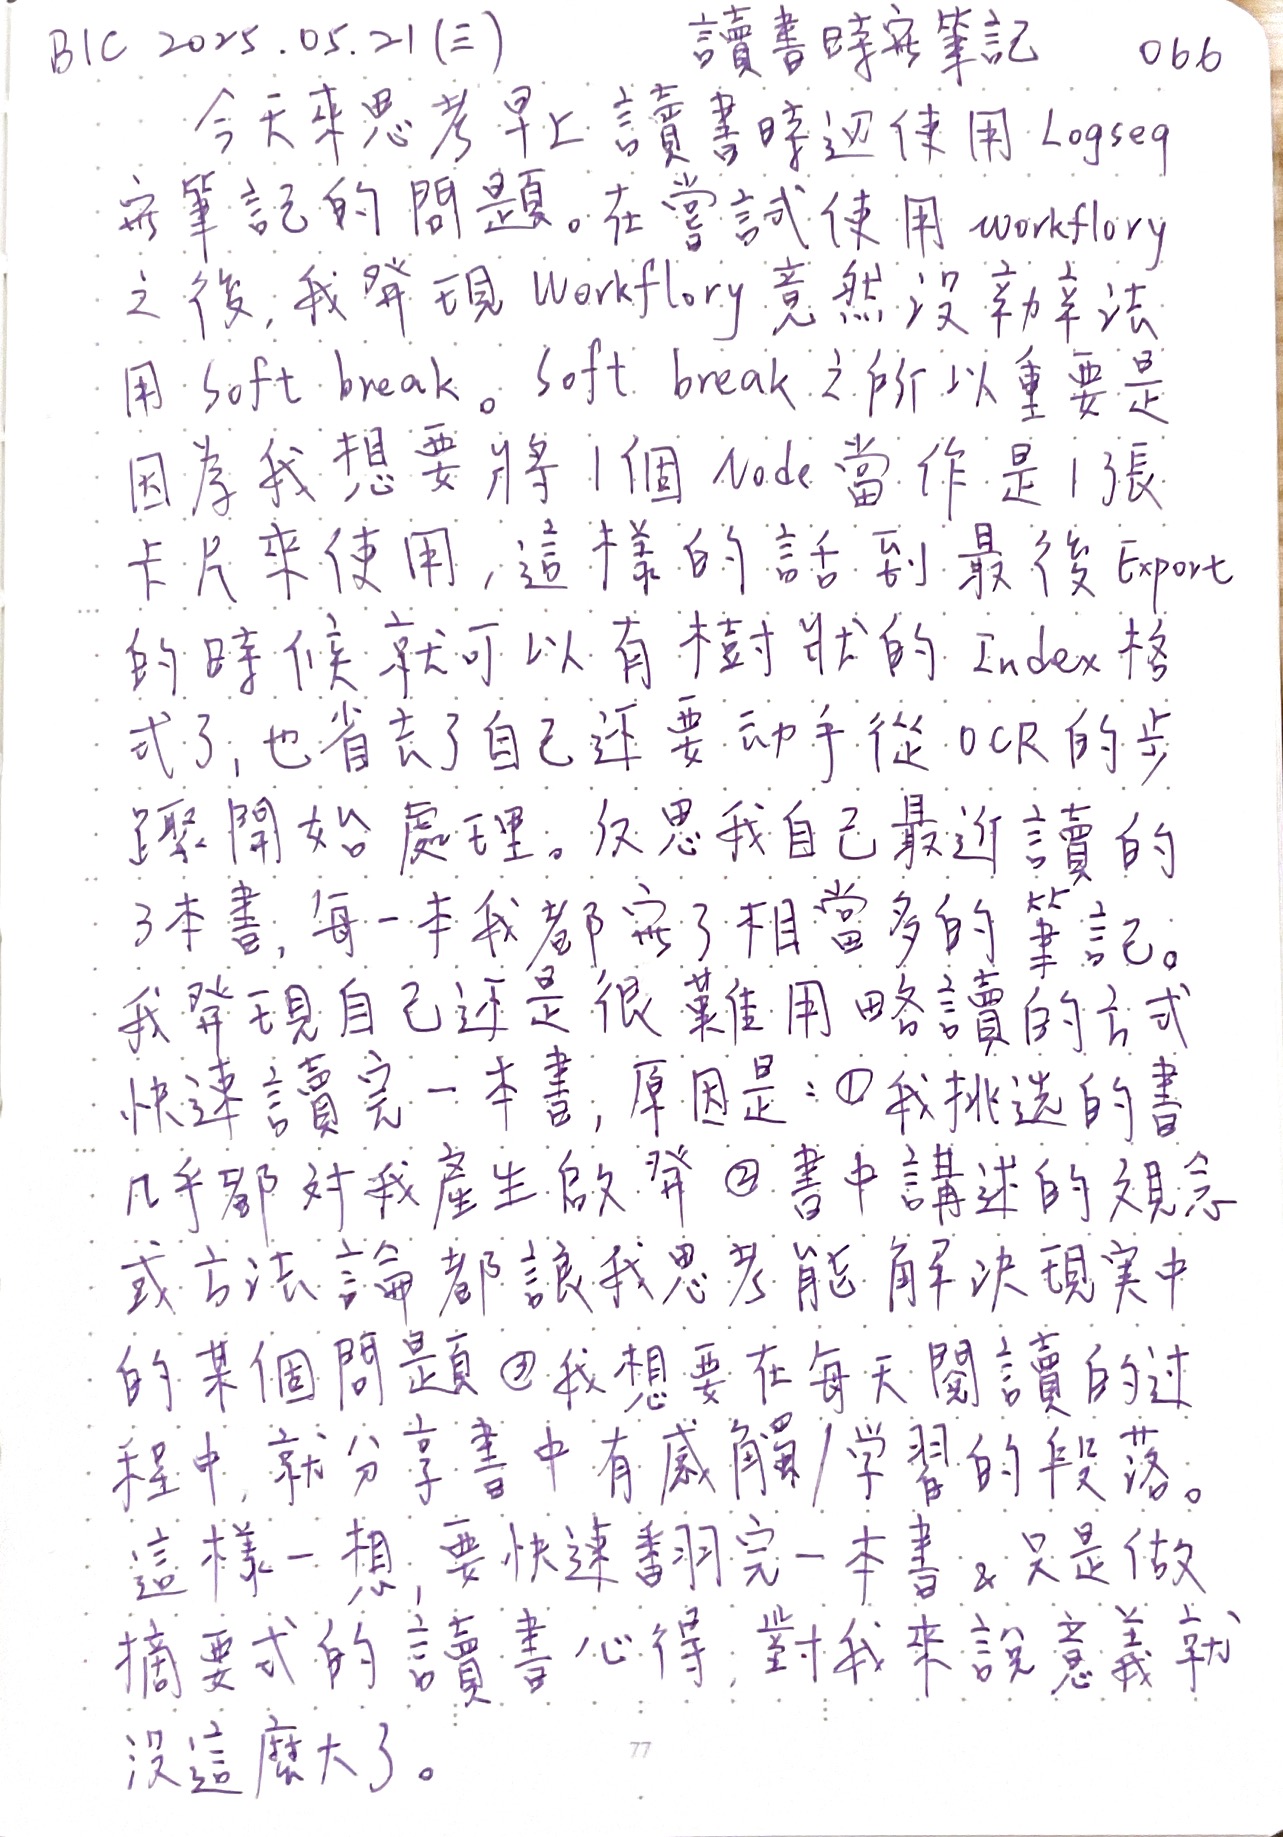 BIC 2025.05.21(三) 讀書時寫筆記 066
今天來思考早上讀書時边使用 Logseq
寫筆記的問題。在嘗試使用 workflory
之後,我發現 Workflory 竟然沒辦法
用 soft break。soft break 之所以重要是
因為我想要將1個 Node 當作是1張
卡片來使用,這樣的話到最後 Export
的時候就可以有樹狀的 Index 格
式了,也省去了自己还要动手從 OCR 的步
驟開始處理。反思我自己最近讀的
3本書,每一本我都寫了相當多的筆記。
我發現自己还是很難用略讀的方式
快速讀完一本書,原因是:①我挑选的書
几乎都对我產生啟發 ②書中講述的观念
或方法論都讓我思考能解決現実中
的某個問題 ③我想要在每天閱讀的过
程中,就分享書中有感觸/学習的段落。
這樣一想,要快速翻完一本書 & 只是做
摘要式的讀書心得,對我來說意義就
沒這麼大了。
77